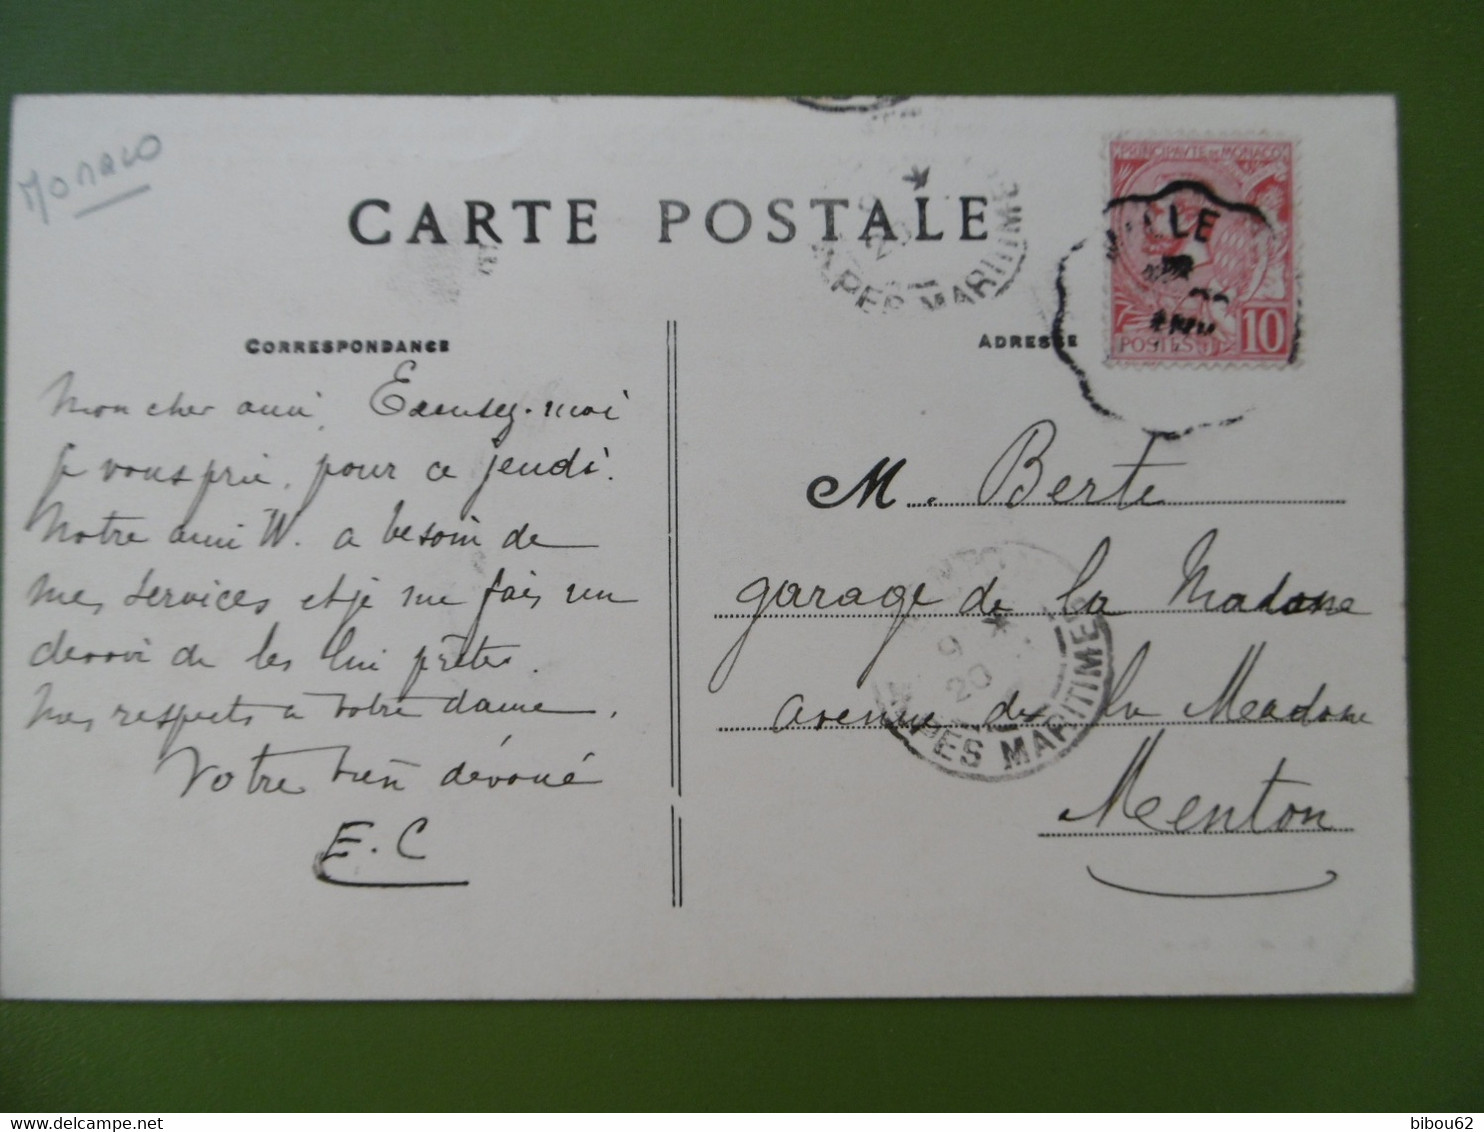 Monaco
CARTE POSTALE
ALPES MARITIMES
PRINCIPAUTE DE MONACO
VILLE
POSTES 10
CORRESPONDANCE
ADRESSE
Mon cher ami, Excusez-moi
je vous prie, pour ce jeudi.
Notre ami W. a besoin de
mes services et je me fais un
devoir de les lui prêter.
Mes respects à votre dame.
Votre bien dévoué
E. C
M. Berte
garage de la Madone
avenue de la Madone
Menton
9
20
ALPES MARITIMES
bibou62